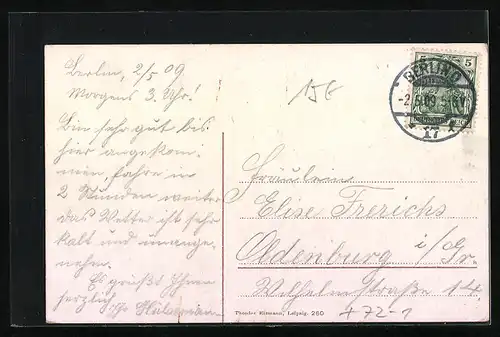 Berlin, 2/5 09
Morgens 3. Uhr!
Bin sehr gut bis
hier angekom-
men, fahre in
2 Stunden weiter
das Wetter ist sehr
kalt und unange-
nehm.
Es grüßt Ihnen
herzlich Ihr
15€
BERLIN O
17
5
Fräulein
Elise Frerichs
Oldenburg i/Gr.
Wilhelmstraße 14.
Theodor Eismann, Leipzig. 260
+72-1